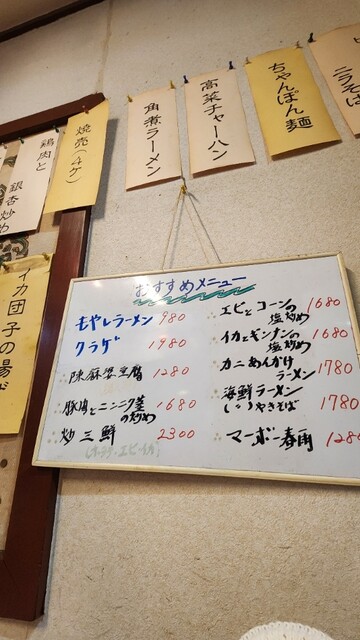 ちゃんぽん麺
高菜チャーハン
角煮ラーメン
焼売(4ケ)
鶏肉と
銀杏炒め
イカ団子の湯
おすすめメニュー
もやしラーメン 980
クラゲ 1980
陳麻婆豆腐 1280
豚肉とニンニク茎の炒め 1680
炒三鮮 2300
エビとコーンの塩炒め 1680
イカとギンナンの塩炒め 1680
カニあんかけラーメン 1780
海鮮ラーメン
(〃)やきそば 1780
マーボー春雨 128